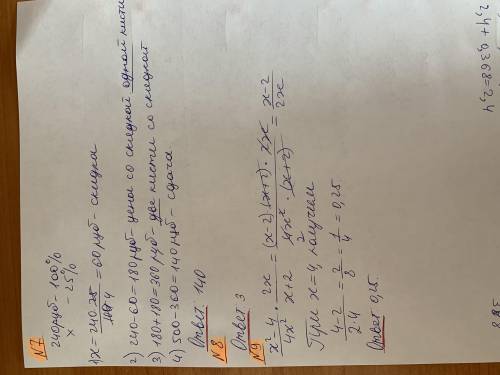 N7
240 руб - 100%
x - 25%
1) x = 240·25/100 = 60 руб - скидка
2) 240-60=180 руб - цена со скидкой одной кисти
3) 180+180=360 руб - две кисти со скидкой
4) 500-360=140 руб - сдача
Ответ 140
N8
Ответ 3
N9
x²-4/4x² · 2x/x+2 = (x-2)(x+2)·2x/4x²·(x+2) = x-2/2x
2
При x=4, получаем
4-2/2·4 = 2/8 = 1/4 = 0,25.
Ответ 0,25.
2,4+0,3
68=2,4